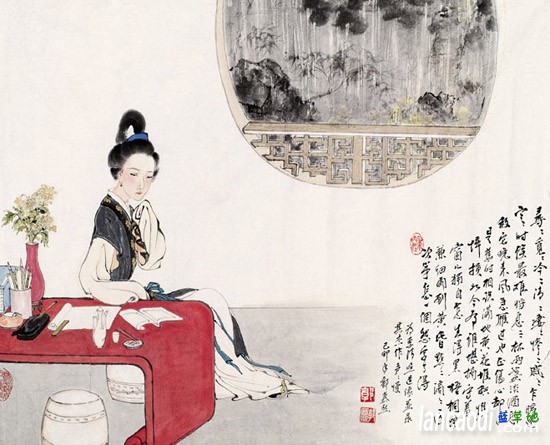 尋〻覓〻冷〻清〻悽〻慘〻戚〻乍暖還
寒時候最難將息三杯兩盞淡酒怎
敵它晚來風急雁過也正傷心卻
是舊時相識滿地黃花堆積憔
悴損如今有誰堪摘守着
窗兒獨自怎生得黑梧桐更
兼細雨到黃昏點〻滴〻這
次第怎一個愁字了得
己卯年
lancaodi.com